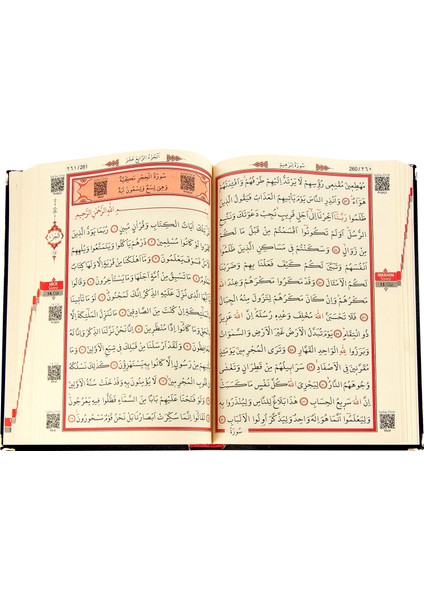 سُورَةُ إِبْرٰهِيمَ
260/٢٦٠
مُهْطِعِينَ مُقْنِعِي رُؤُسِهِمْ لَا يَرْتَدُّ إِلَيْهِمْ طَرْفُهُمْ وَأَفْئِدَتُهُمْ
هَوَاءٌ وَأَنْذِرِ النَّاسَ يَوْمَ يَأْتِيهِمُ الْعَذَابُ فَيَقُولُ الَّذِينَ
ظَلَمُوا رَبَّنَا أَخِّرْنَا إِلَى أَجَلٍ قَرِيبٍ نُجِبْ دَعْوَتَكَ وَنَتَّبِعِ
الرُّسُلَ أَوَلَمْ تَكُونُوا أَقْسَمْتُمْ مِنْ قَبْلُ مَا لَكُمْ مِنْ
زَوَالٍ وَسَكَنْتُمْ فِي مَسَاكِنِ الَّذِينَ ظَلَمُوا
أَنْفُسَهُمْ وَتَبَيَّنَ لَكُمْ كَيْفَ فَعَلْنَا بِهِمْ وَضَرَبْنَا
لَكُمُ الْأَمْثَالَ وَقَدْ مَكَرُوا مَكْرَهُمْ وَعِنْدَ اللّٰهِ
مَكْرُهُمْ وَإِنْ كَانَ مَكْرُهُمْ لِتَزُولَ مِنْهُ الْجِبَالُ
فَلَا تَحْسَبَنَّ اللّٰهَ مُخْلِفَ وَعْدِهِ رُسُلَهُ إِنَّ اللّٰهَ عَزِيزٌ
ذُو انْتِقَامٍ يَوْمَ تُبَدَّلُ الْأَرْضُ غَيْرَ الْأَرْضِ وَالسَّمٰوَاتُ
وَبَرَزُوا لِلّٰهِ الْوَاحِدِ الْقَهَّارِ وَتَرَى الْمُجْرِمِينَ يَوْمَئِذٍ
مُقَرَّنِينَ فِي الْأَصْفَادِ سَرَابِيلُهُمْ مِنْ قَطِرَانٍ وَتَغْشٰى
وُجُوهَهُمُ النَّارُ لِيَجْزِيَ اللّٰهُ كُلَّ نَفْسٍ مَا كَسَبَتْ
إِنَّ اللّٰهَ سَرِيعُ الْحِسَابِ هٰذَا بَلَاغٌ لِلنَّاسِ وَلِيُنْذَرُوا بِهِ
وَلِيَعْلَمُوا أَنَّمَا هُوَ إِلٰهٌ وَاحِدٌ وَلِيَذَّكَّرَ أُولُوا الْأَلْبَابِ
سُورَةُ
اَلْجُزْءُ الرَّابِعُ عَشَرَ
٢٦١/261
سُورَةُ الْحِجْرِ مَكِّيَّةٌ
وَهِيَ تِسْعٌ وَتِسْعُونَ اٰيَةً
بِسْمِ اللّٰهِ الرَّحْمٰنِ الرَّحِيمِ
الٓرٰ تِلْكَ اٰيَاتُ الْكِتَابِ وَقُرْاٰنٍ مُبِينٍ رُبَمَا يَوَدُّ الَّذِينَ
كَفَرُوا لَوْ كَانُوا مُسْلِمِينَ ذَرْهُمْ يَأْكُلُوا وَيَتَمَتَّعُوا وَيُلْهِهِمُ
الْأَمَلُ فَسَوْفَ يَعْلَمُونَ وَمَا أَهْلَكْنَا مِنْ قَرْيَةٍ إِلَّا وَلَهَا كِتَابٌ
مَعْلُومٌ مَا تَسْبِقُ مِنْ أُمَّةٍ أَجَلَهَا وَمَا يَسْتَأْخِرُونَ وَقَالُوا
يَا أَيُّهَا الَّذِي نُزِّلَ عَلَيْهِ الذِّكْرُ إِنَّكَ لَمَجْنُونٌ لَوْ مَا تَأْتِينَا
بِالْمَلٰئِكَةِ إِنْ كُنْتَ مِنَ الصَّادِقِينَ مَا نُنَزِّلُ الْمَلٰئِكَةَ إِلَّا
بِالْحَقِّ وَمَا كَانُوا إِذًا مُنْظَرِينَ إِنَّا نَحْنُ نَزَّلْنَا الذِّكْرَ وَإِنَّا لَهُ
لَحَافِظُونَ وَلَقَدْ أَرْسَلْنَا مِنْ قَبْلِكَ فِي شِيَعِ الْأَوَّلِينَ
وَمَا يَأْتِيهِمْ مِنْ رَسُولٍ إِلَّا كَانُوا بِهِ يَسْتَهْزِؤُنَ كَذٰلِكَ نَسْلُكُهُ
فِي قُلُوبِ الْمُجْرِمِينَ لَا يُؤْمِنُونَ بِهِ وَقَدْ خَلَتْ سُنَّةُ الْأَوَّلِينَ
وَلَوْ فَتَحْنَا عَلَيْهِمْ بَابًا مِنَ السَّمَاءِ فَظَلُّوا فِيهِ يَعْرُجُونَ
لَقَالُوا إِنَّمَا سُكِّرَتْ أَبْصَارُنَا بَلْ نَحْنُ قَوْمٌ مَسْحُورُونَ